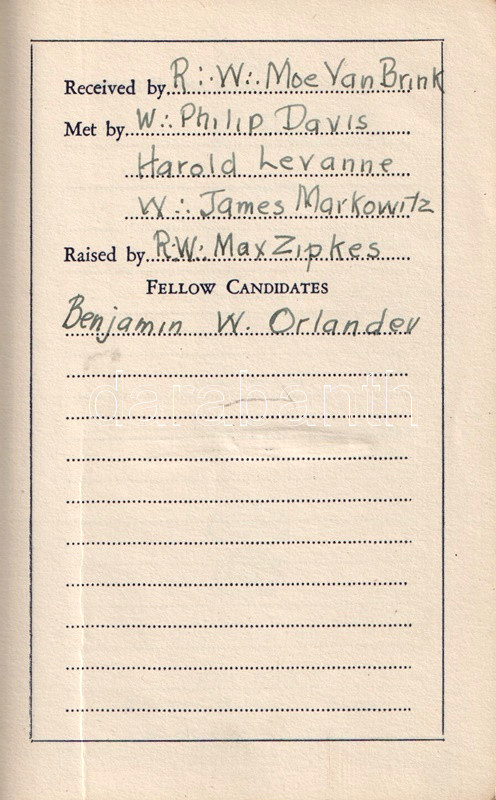 Received by R∴W∴ Moe Van Brink
Met by W∴ Philip Davis
Harold Levanne
W∴ James Markowitz
Raised by R∴W∴ Max Zipkes
FELLOW CANDIDATES
Benjamin W. Orlander
darabanth